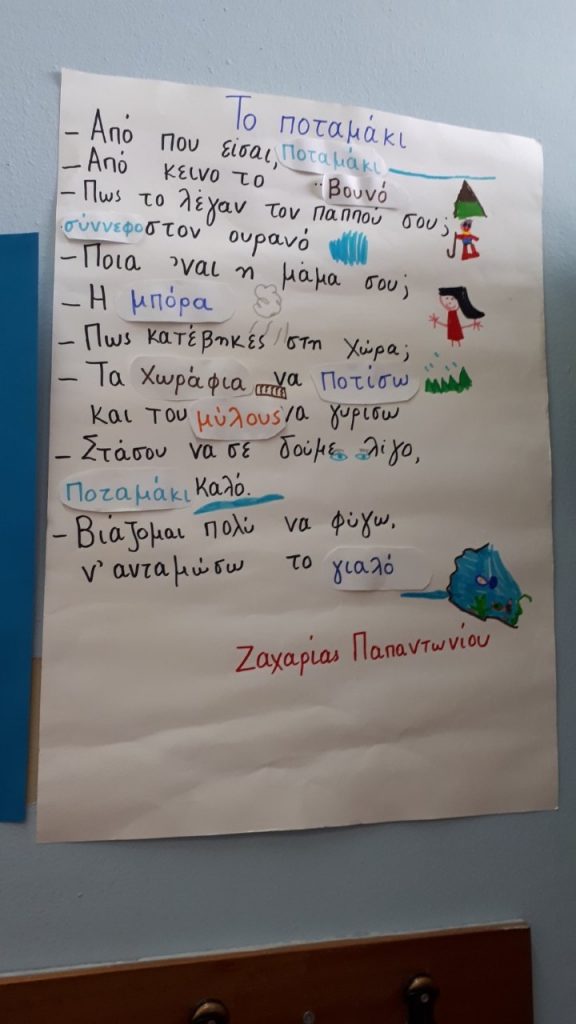 Το ποταμάκι
- Από που είσαι, Ποταμάκι
- Από κεινο το Βουνό
- Πως το λέγαν τον παππού σου;
σύννεφο στον ουρανό
- Ποια 'ναι η μάμα σου;
- Η μπόρα
- Πως κατέβηκές στη χώρα;
- Τα Χωράφια να Ποτίσω
και του μύλους να γυρίσω
- Στάσου να σε δούμε λίγο,
Ποταμάκι καλό.
- Βιάζομαι πολύ να φύγω,
ν' ανταμώσω το γιαλό
Ζαχαρίας Παπαντωνίου